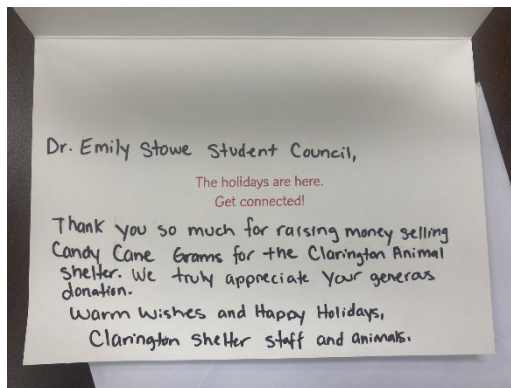 Dr. Emily Stowe Student Council,
The holidays are here.
Get connected!
Thank you so much for raising money selling
Candy Cane Grams for the Clarington Animal
Shelter. We truly appreciate your generous
donation.
Warm Wishes and Happy Holidays,
Clarington Shelter staff and animals.